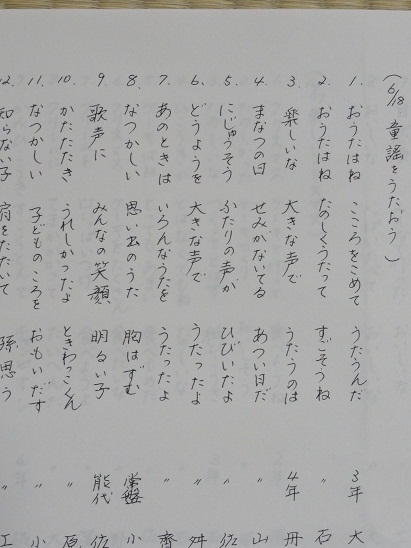 (6/18 童謡をうたおう)
1. おうたはね こころをこめて うたうんだ 3年 大
2. おうたはね たのしくうたって すごそうね 〃 石
3. 楽しいな 大きな声で うたうのは 4年 丹
4. まなつの日 せみがないてる あつい日だ 〃 山
5. にじゅうそう ふたりの声が ひびいたよ 〃 佐
6. どうようを 大きな声で うたったよ 〃 舛
7. あのときは いろんなうたを うたったよ 〃 齊
8. なつかしい 思い出のうた 胸はずむ 常盤 小
9. 歌声に みんなの笑顔 明るい子 能代 佐
10. かたたたき うれしかったよ ときわっこくん 〃 原
11. なつかしい 子どものころを おもいだす 〃 小
12. 知らない子 肩をたたいて 孫思う 〃 工